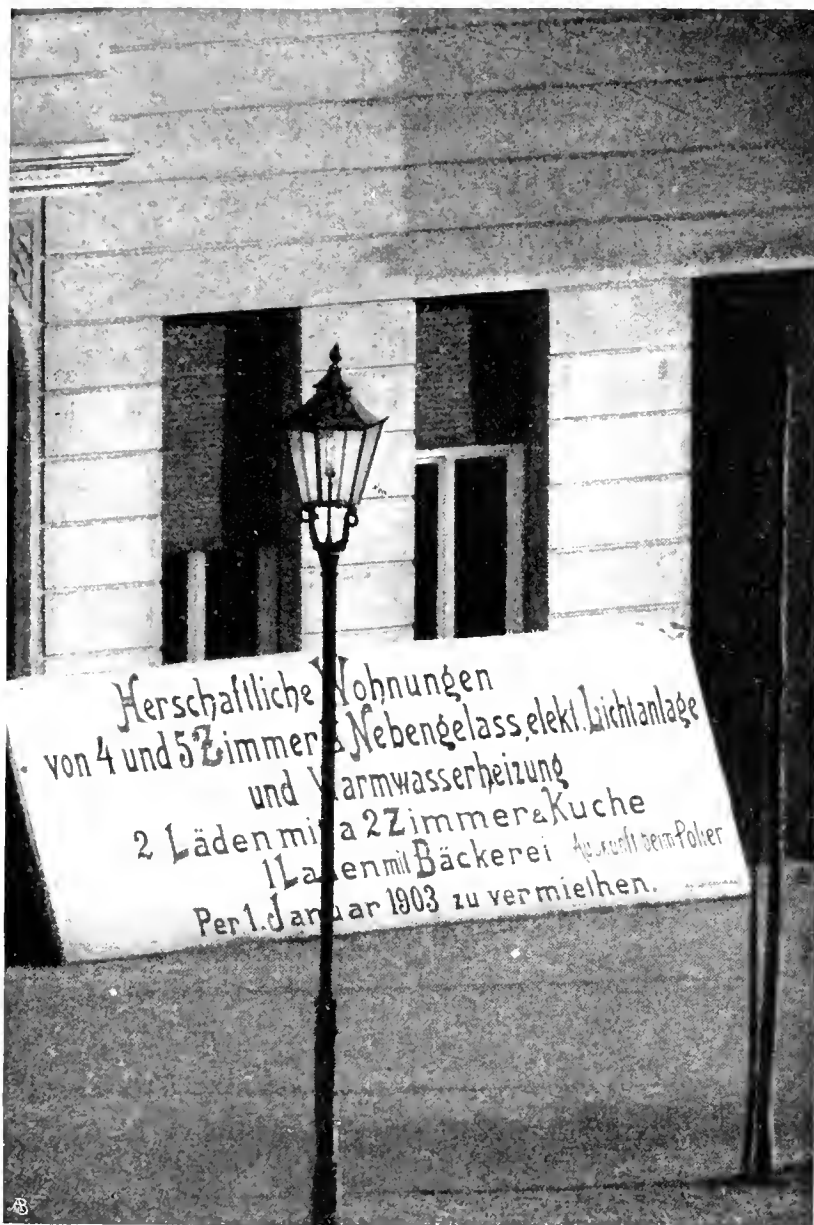 Herschaftliche Wohnungen
von 4 und 5 Zimmer & Nebengelass, elekt. Lichtanlage
und Warmwasserheizung
2 Läden mit a 2 Zimmer & Kuche
1 Laden mit Bäckerei Auskunft beim Polier
Per 1. Januar 1903 zu vermiethen.